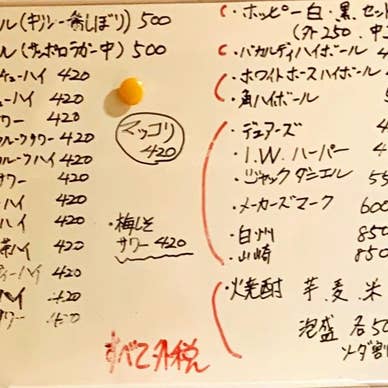 ル(キリン一番しぼり) 500
ル(サッポロラガー中) 500
チューハイ 420
ューハイ 420
ワー 420
フルーツサワー 420
フルーツハイ 420
サワー 420
ハイ 420
ハイ 420
茶ハイ 420
ティーハイ 420
ハイ 420
サワー 420
マッコリ
420
・梅しそ
サワー 420
すべて外税
・ホッピー 白・黒 セット
(外250、中
・バカルディハイボール
・ホワイトホースハイボール
・角ハイボール
・デュワーズ 4
・I.W.ハーパー 4
・ジャックダニエル 55
・メーカーズマーク 600
・白州 850
・山崎 850
・焼酎 芋、麦、米
泡盛 各50
ソーダ割